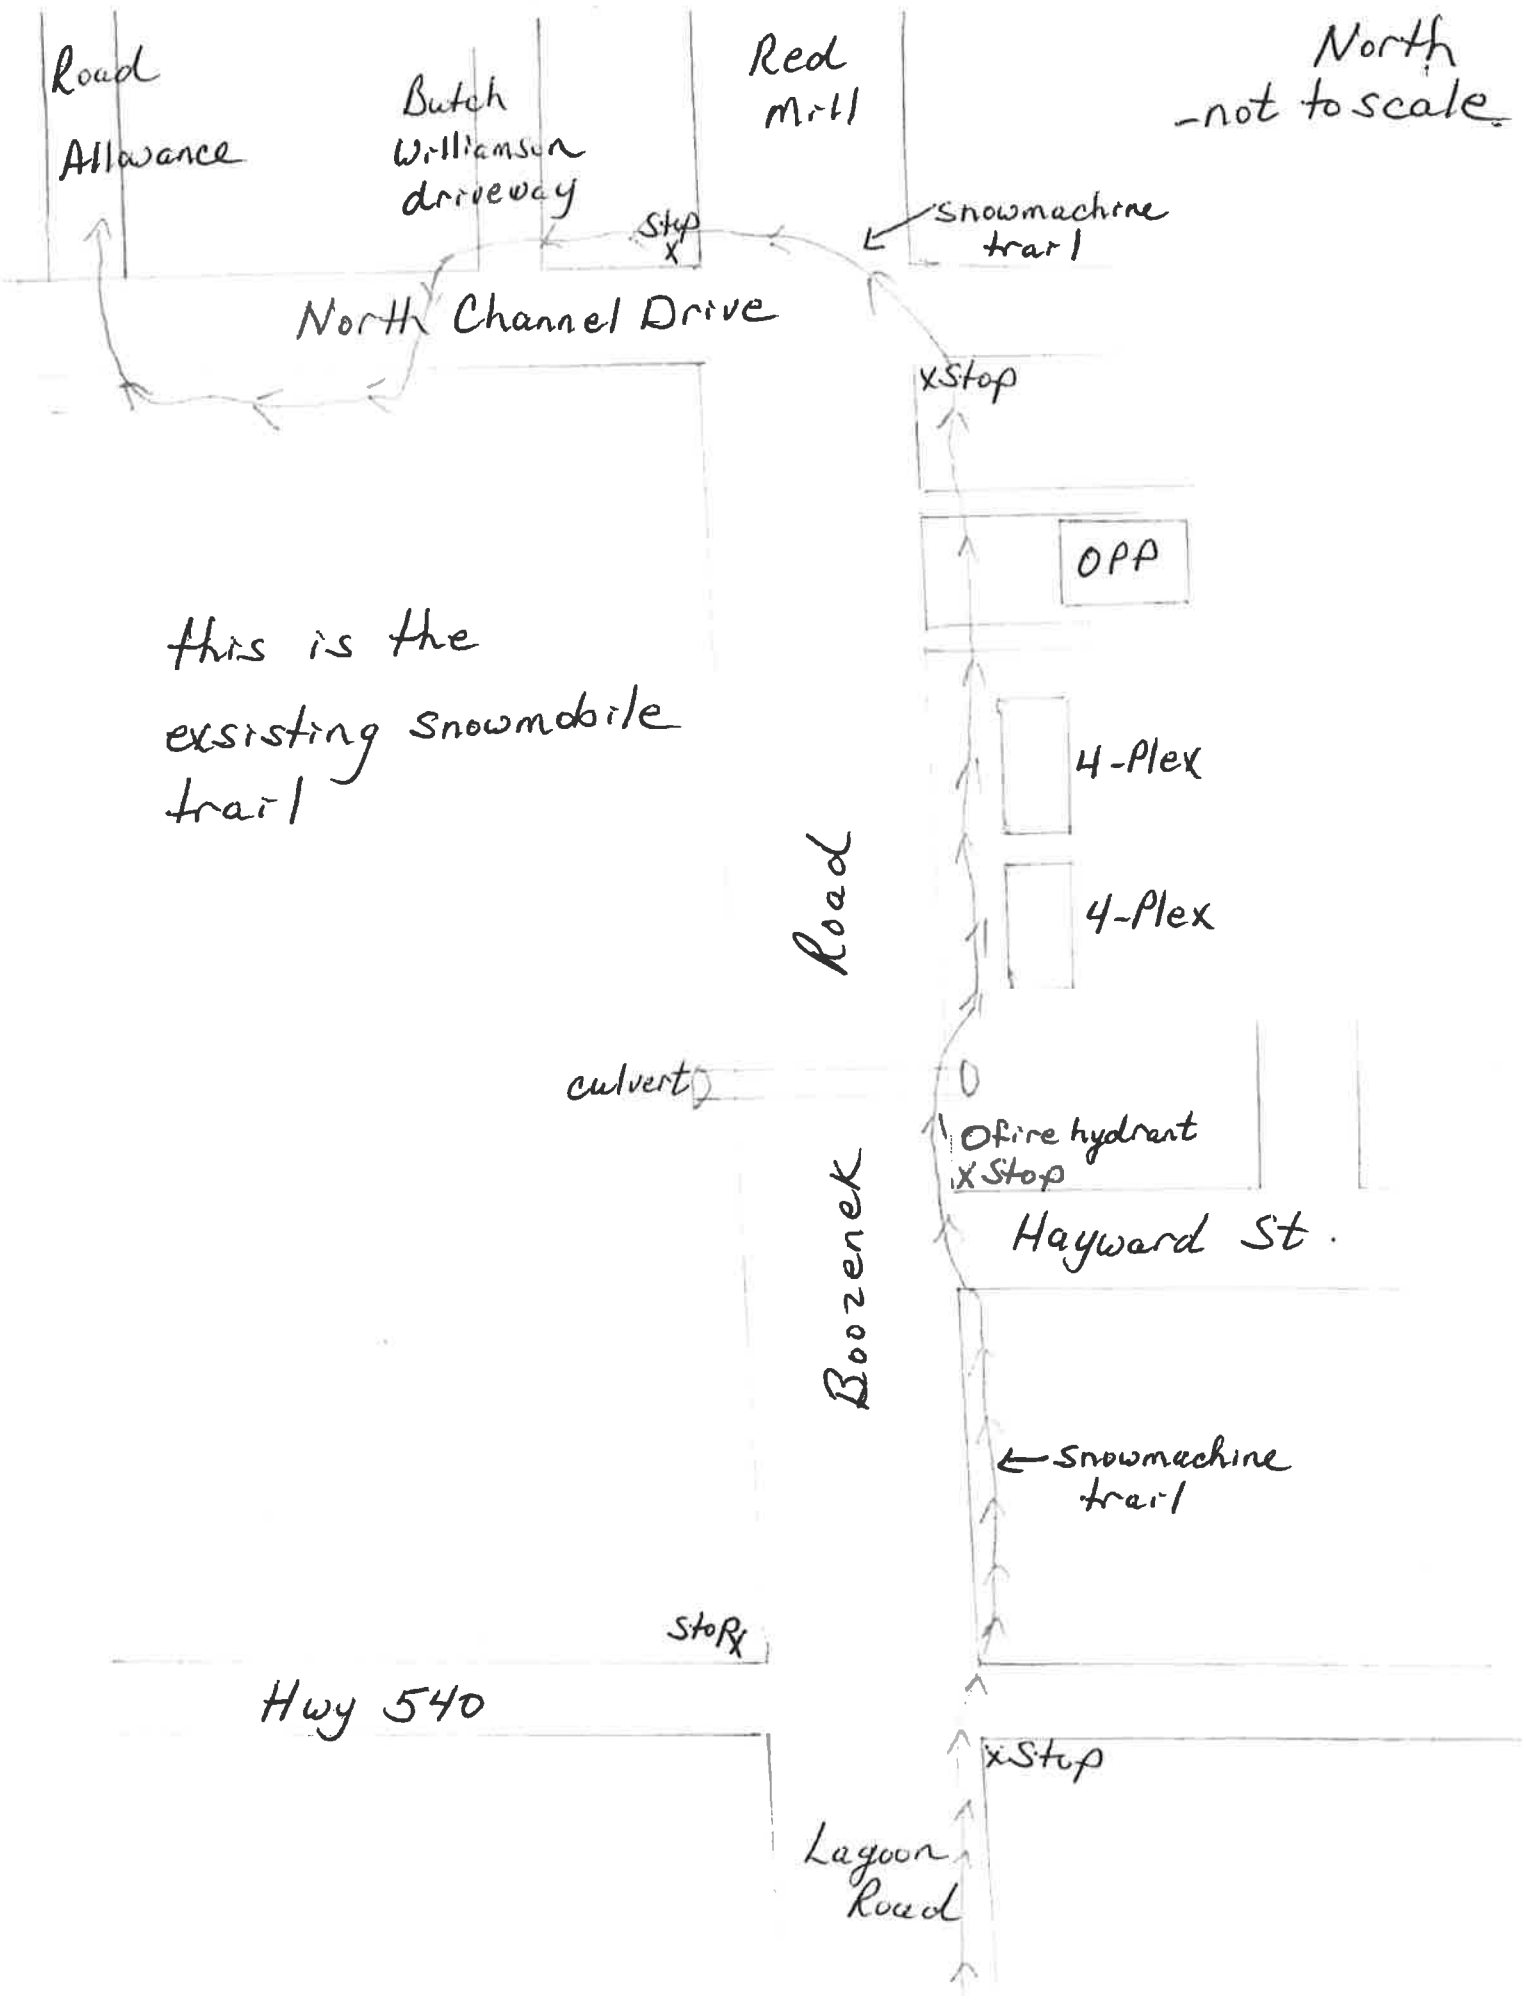 North
-not to scale.
Road
Allowance
Butch
Williamson
driveway
Red
Mill
Stop
X
snowmachine
trail
North Channel Drive
x Stop
OPP
this is the
exsisting snowmobile
trail
4-Plex
4-Plex
Road
Boozenek
culvert
O fire hydrant
x Stop
Hayward St.
snowmachine
trail
Stop x
Hwy 540
x Stop
Lagoon
Road